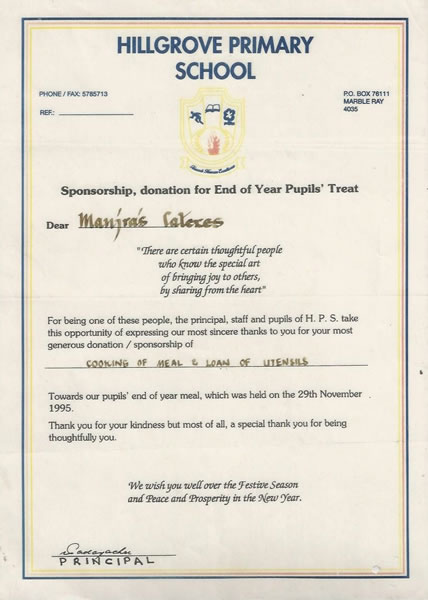 HILLGROVE PRIMARY
SCHOOL
PHONE / FAX: 5785713
P.O. BOX 76111
MARBLE RAY
4035
REF.:
Sponsorship, donation for End of Year Pupils' Treat
Dear Manjra's Cateres
"There are certain thoughtful people
who know the special art
of bringing joy to others,
by sharing from the heart"
For being one of these people, the principal, staff and pupils of H. P. S. take
this opportunity of expressing our most sincere thanks to you for your most
generous donation / sponsorship of
COOKING OF MEAL & LOAN OF UTENSILS
Towards our pupils' end of year meal, which was held on the 29th November
1995.
Thank you for your kindness but most of all, a special thank you for being
thoughtfully you.
We wish you well over the Festive Season
and Peace and Prosperity in the New Year.
PRINCIPAL